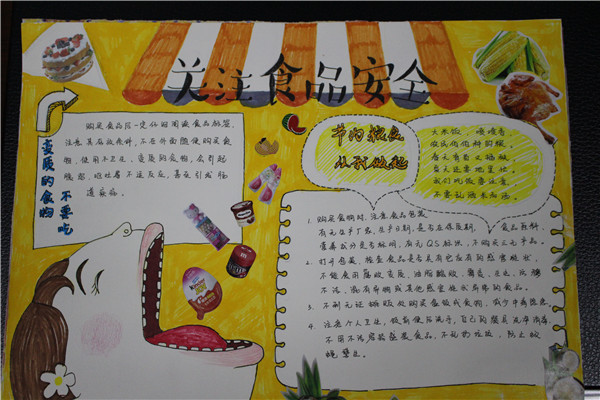 关注食品安全
购买食品后一定仔细阅读食品标签,
注意其存放条件,不在外面随便购买食
物,使用不卫生、变质的食物,会引起
腹泻、呕吐等不适反应,甚至引发肠
道疾病。
变质的食物 不要吃
节约粮食
从我做起
大米饭,喷喷香
农民伯伯种的粮
1、购买食物时,注意食品包装
有无生产厂家、生产日期,是否在保质期,食品原料、
营养成分是否标明,有无QS标识,不购买三无产品。
2、打开包装,检查食品是否具有它应有的感官性状,
不能食用腐败变质、油脂酸败、霉变、生虫、
不洁、混有异物或其他感官性状异常的食物。
3、不到无证摊贩处购买食物,减少中毒隐患。
4、注意个人卫生,饭前便后洗手,自己的餐具洗净消毒
不用不洁容器盛装食品,不乱扔垃圾,防止蚊
蝇孳生。